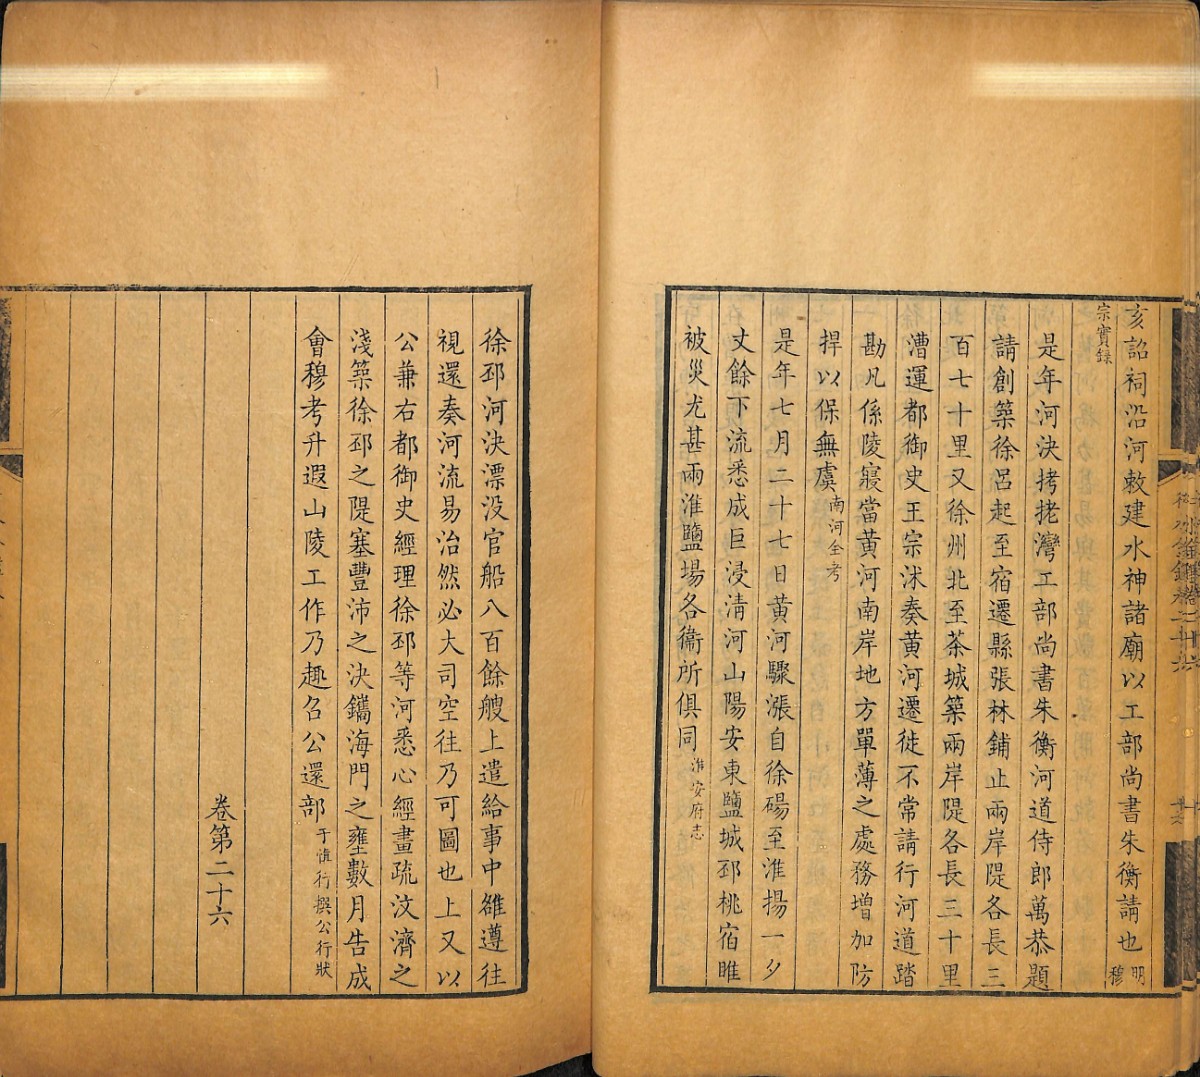 亥詔祠沿河敕建水神諸廟以工部尚書朱衡請也明穆
宗實錄
是年河決栲栳灣工部尚書朱衡河道侍郎萬恭題
請創築徐呂起至宿遷縣張林鋪止兩岸隄各長三
百七十里又徐州北至茶城築兩岸隄各長三十里
漕運都御史王宗沭奏黃河遷徙不常請行河道踏
勘凡係陵寢當黃河南岸地方單薄之處務增加防
捍以保無虞南河全考
是年七月二十七日黃河驟漲自徐碭至淮揚一夕
丈餘下流悉成巨浸清河山陽安東鹽城邳桃宿睢
被災尤甚兩淮鹽場各衞所俱同淮安府志
徐邳河決漂没官船八百餘艘上遣給事中雒遵往
視還奏河流易治然必大司空往乃可圖也上又以
公兼右都御史經理徐邳等河悉心經畫疏汶濟之
淺築徐邳之隄塞豐沛之決鑴海門之壅數月告成
會穆考升遐山陵工作乃趣召公還部于慎行撰公行狀
卷第二十六